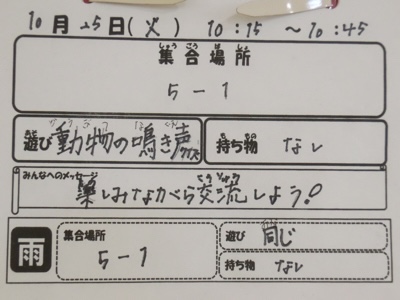 10月25日(火) 10:15 〜10:45
集合場所
5-1
遊び 動物の鳴き声クイズ
持ち物 なし
みんなへのメッセージ
楽しみながら交流しよう!
雨
集合場所
5-1
遊び 同じ
持ち物 なし